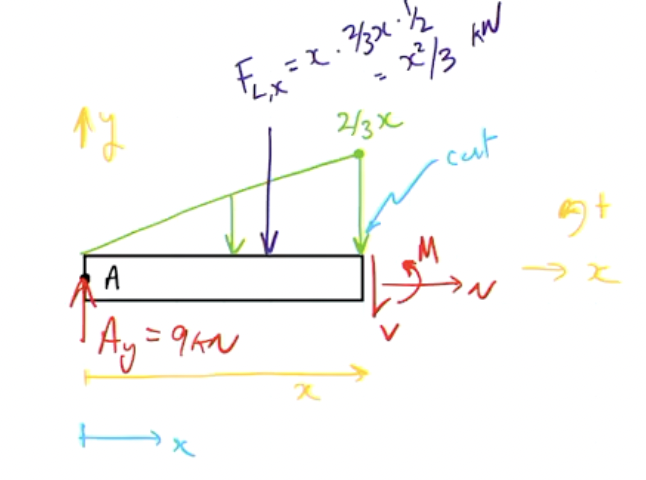 F_L,x = x · 2/3x · 1/2
= x²/3 kN
y
2/3x
cut
+
A
M
x
N
V
A_y = 9kN
x
x